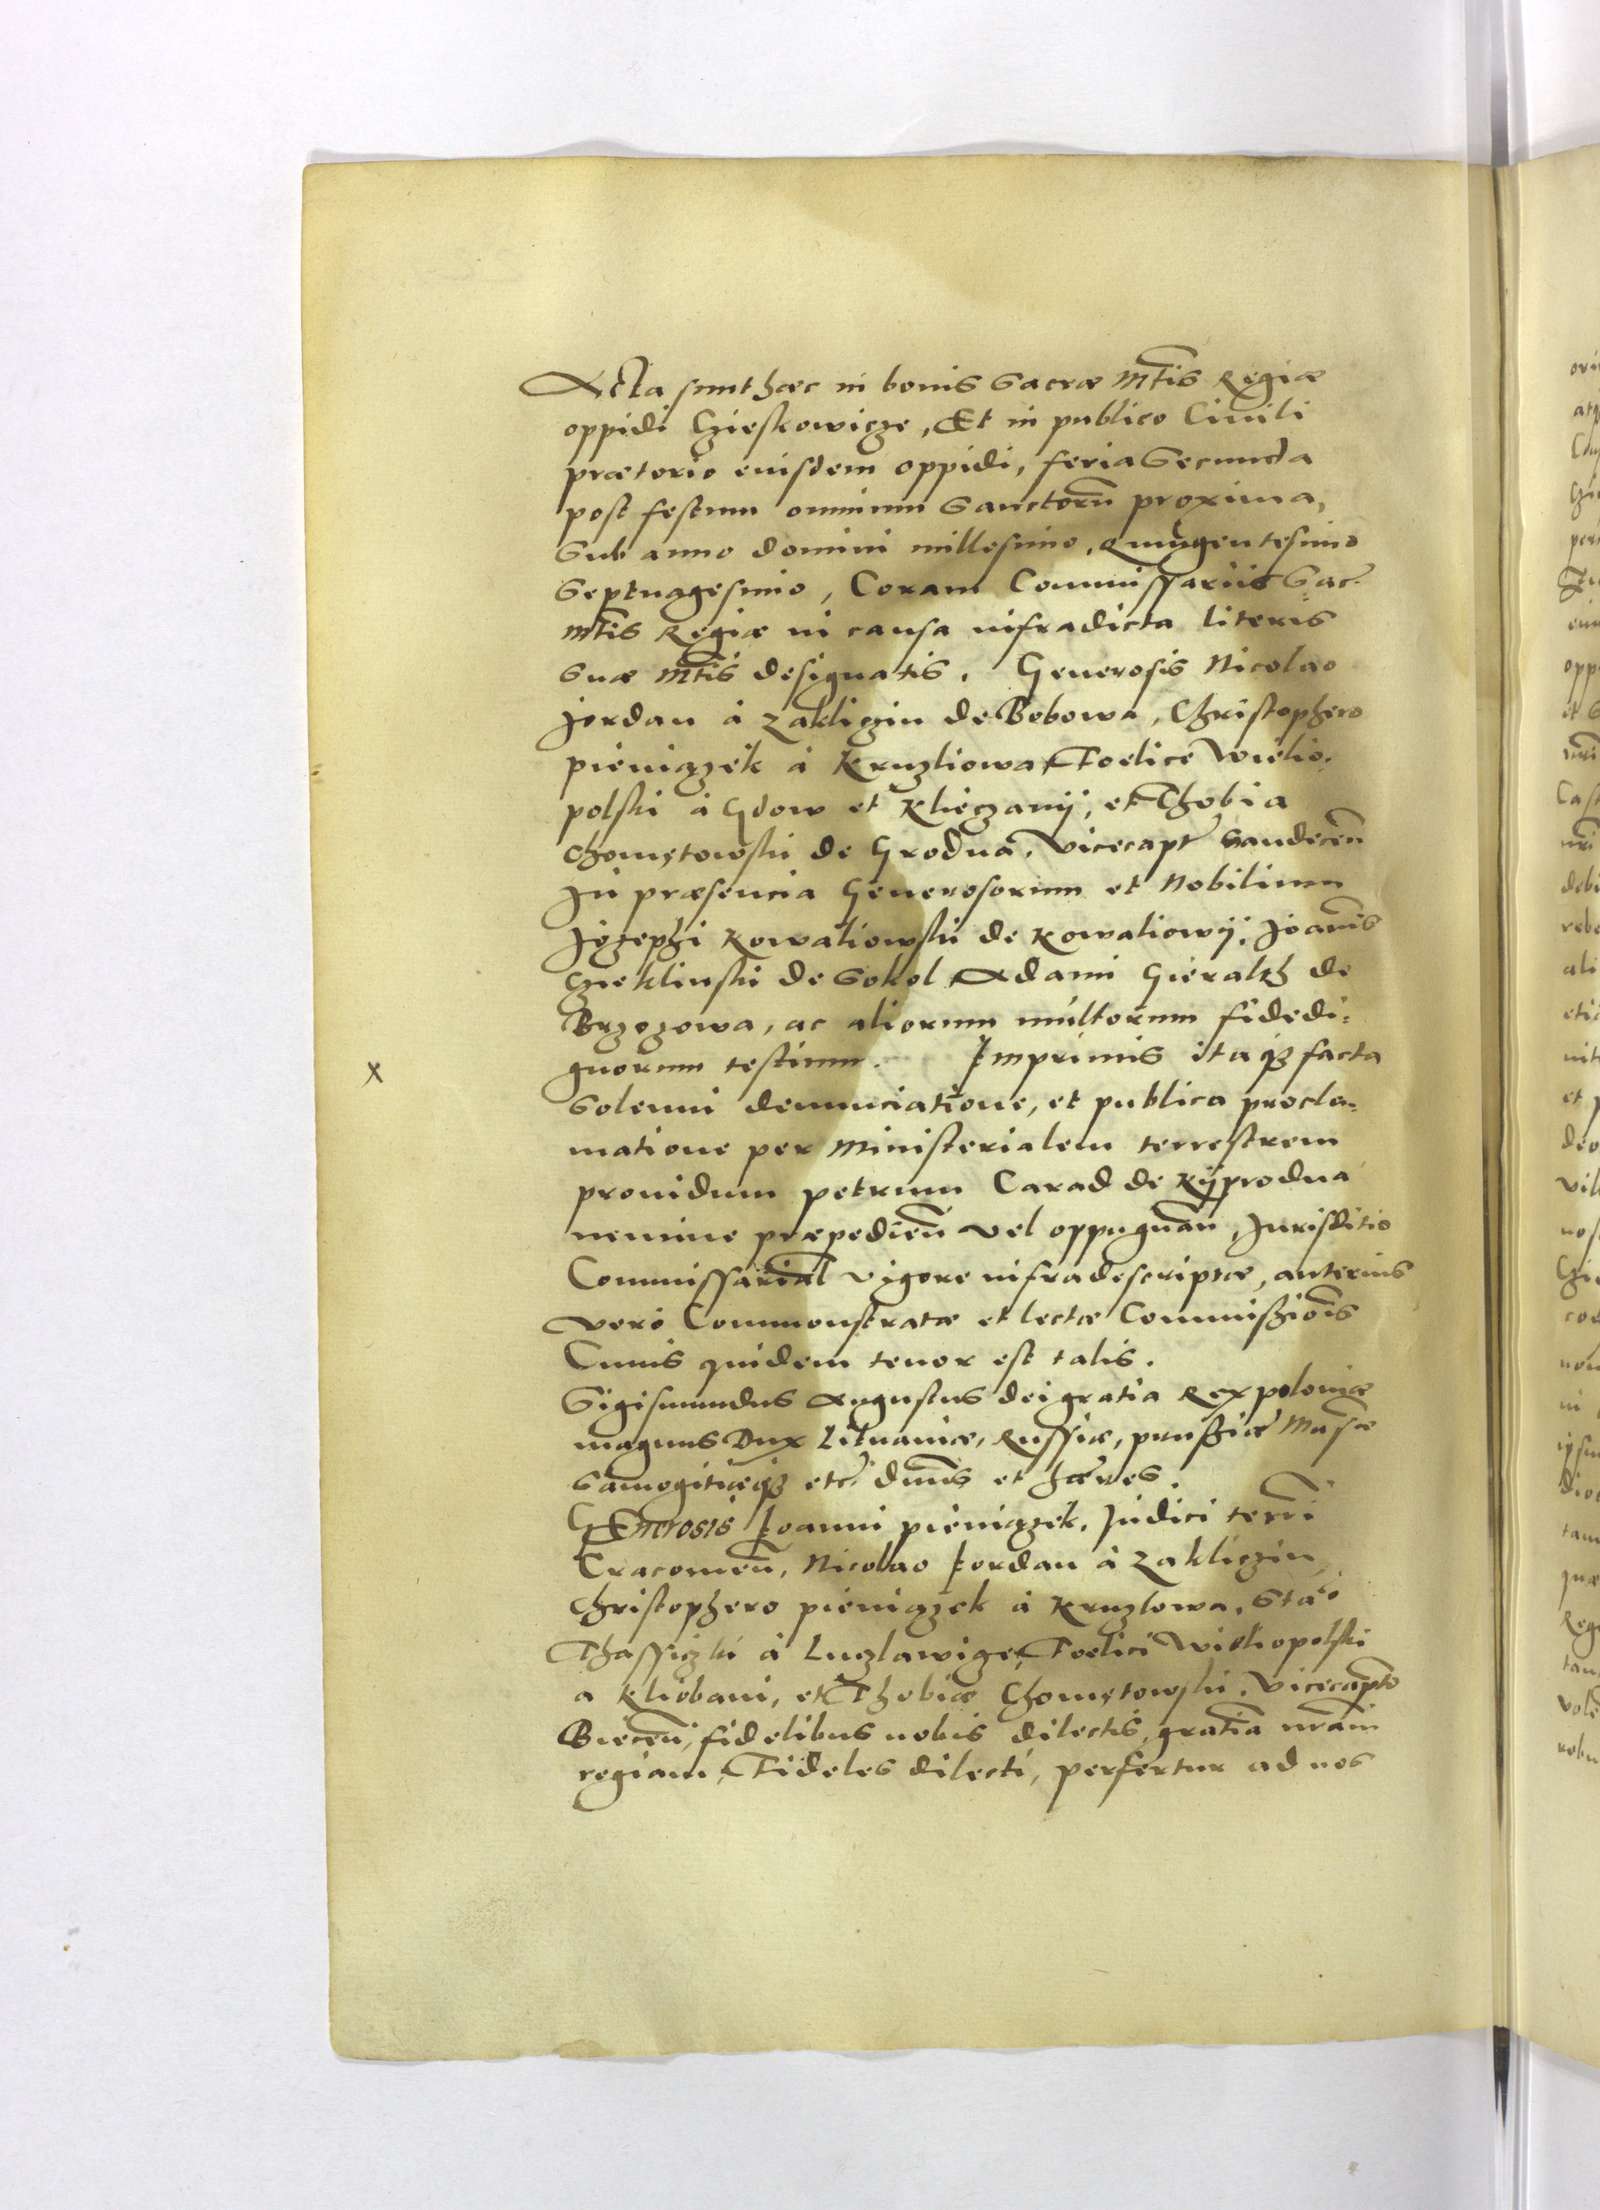 Acta sunt hæc in bonis Sacræ Mtis Regiæ
oppidi Czieskowicze, Et in publico Ciuili
prætorio euisdem oppidi, feria Secunda
post festum omnium Sanctorũ proxima,
Sub anno domini millesimo, Quingentesimo
Septuagesimo, Coram Commissariis Sac.
Mtis Regiæ in causa infradicta literis
Suæ Mtis designatis. Generosis Nicolao
Jordan à Zakliczin de Bobowa, Christophero
pieniązek à Kruzliowa, Foelice Wielio,
polski à Gdow et Klieczanÿ, et Thobia
Chomętowski de Grodna, Vicecapt Sandeceñ
In præsencia Generosorum et Nobilium
Jozephi Kowaliowski de Kowaliowÿ, Joañis
Czieklinski de Sokol Adami Gieralth de
Brzozowa, ac aliorum multorum fidedi:
gnorum testium. Imprimis itaqz facta
Solenni denunciatione, et publica procla,
matione per Ministerialem terrestrem
prouidum petrum Carad de
nemine præpedieñ vel oppugnañ, Jurisditio
Commissarial vigore infradescriptæ, anterius
vero Commonstratæ et lectæ Commissiõis
Cuius quidem tenor est talis.
Sigismundus Augustus dei gratia Rex poloniæ
magnus Dux Lituaniæ, Russiæ, prussiæ Masæ
Samogitiæqz etc. dñus et hæres.
GEnerosis Joanni pieniązek, Judici terri
Cracouieñ, Nicolao Jordan à Zakliczin
Christophero pieniązek à Kruzlowa, Stão
Thassiczki à Luzlawice, Foelici Wieliopolski
à Kliobani, et Thobiæ Chomętowski, Vicecapto
Bieceñ, fidelibus nobis dilectis, gratia nrãm
regiam, Fideles dilecti, perfertur ad nos